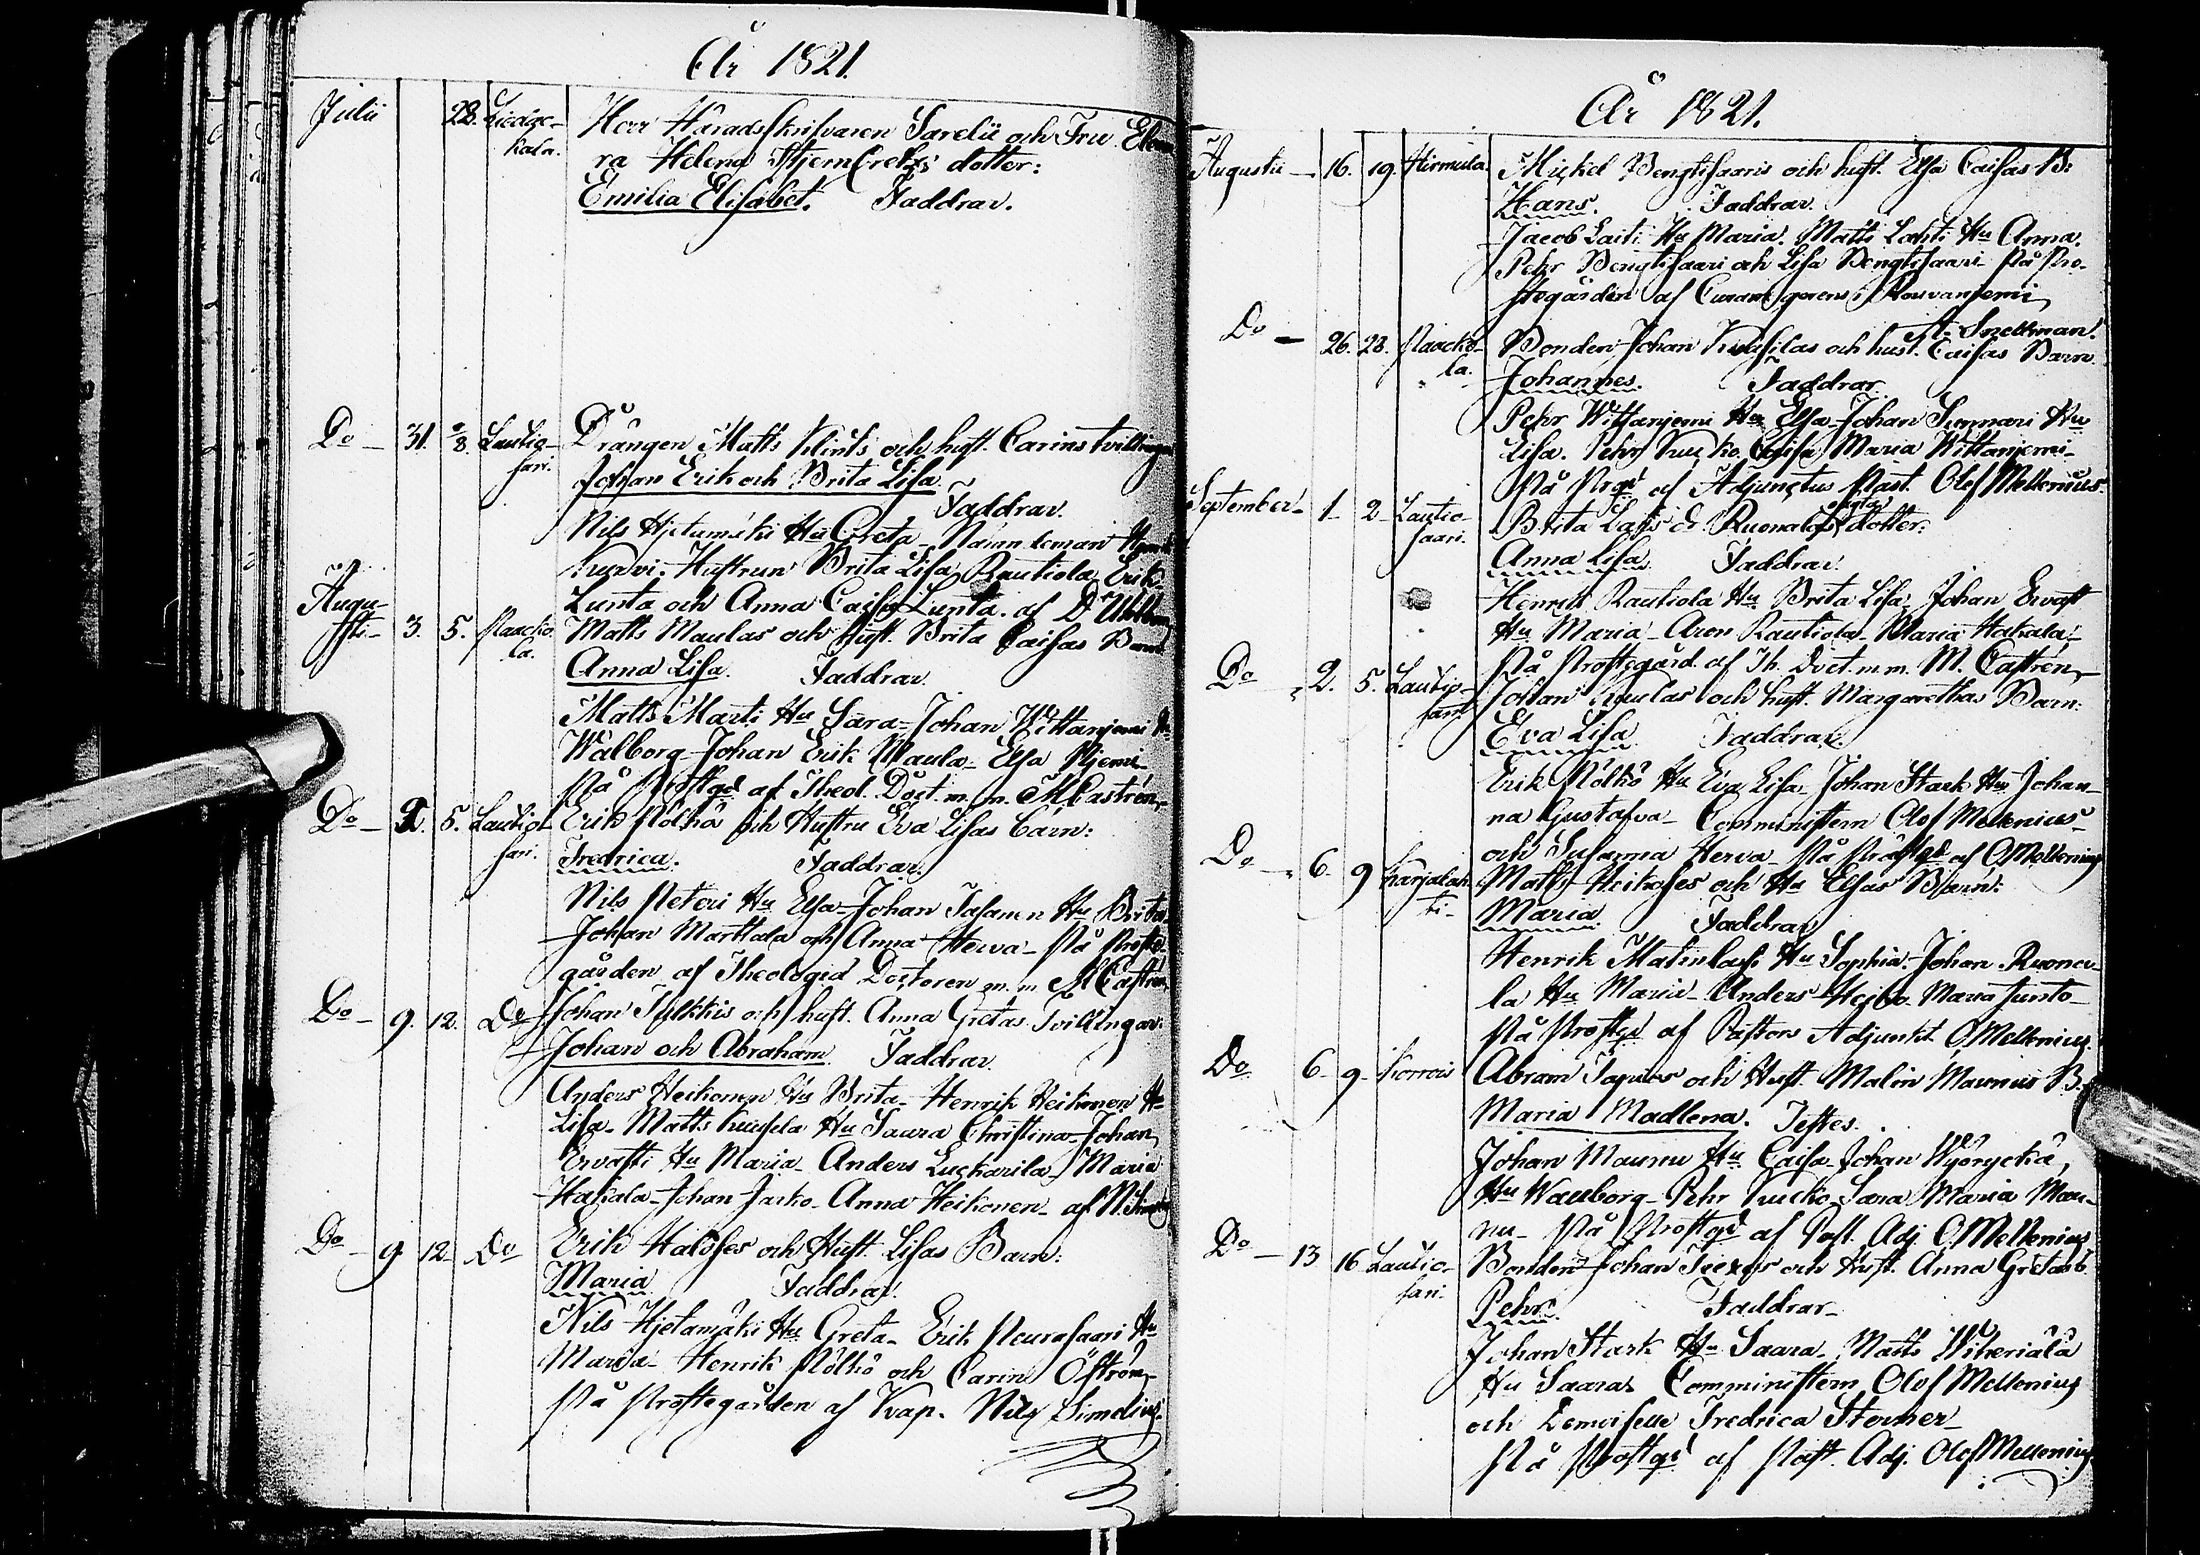 År 1821.
Julii 28. Liedak-
kala.
Herr Häradsskrifvaren Sarelii och Fru Eleono
ra Helena Stjerncreutz's dotter:
Emilia Elisabet. Faddrar.
Do 31. 8. Lautio-
sari.
Drängen Matts Klints och hust. Carins tvillingar
Johan Erik och Brita Lisa
Faddrar.
Nils Hjetamäki Hu Greta - Nämndeman
Kurvi. Hustrun Brita Lisa Rautiola Erik
Lunta och Anna Caisa Lunta. af
Augu-
sti 3. 5. Paacko-
la.
Matts Maulas och hust. Brita Caisas Barn
Anna Lisa. Faddrar.
Matts Marti Hu Sara - Johan Wittaniemi Hu
Walborg - Johan Erik Maula - Elsa Niemi -
På Prostgd af Theol. Doct. m. m. M Castrén
Do 5. Lautio-
sari.
Erik Pölkö och Hustru Eva Lisas barn:
Fredrica. Faddrar.
Nils Peteri Hu Elsa - Johan Hu Brita
Johan Marttala och Anna Herva - På Proste-
gården af Theologiæ Doctoren m. m. M Castrén
Do 9. 12. Do
Johan Tulkkis och hust. Anna Gretas Tvillingar:
Johan och Abraham. Faddrar.
Anders Heikonen Hu Brita - Henrik Heikonen Hu
Lisa - Matts Hu Saara Christina - Johan
Ervasti Hu Maria - Anders Luckarila - Maria
Hakala - Johan Jarko - Anna Heikonen - af N.
Do 9 12 Do
Erik och Hust. Lisas Barn:
Maria Faddrar.
Nils Hjetamäki Hu Greta - Erik Peurasaari Hu
Maria - Henrik Pölkö och Carin Öström -
På Prostegården af Kyap. Nils Simelius.
År 1821.
Augustii 16. 19. Hirmula.
Mickel Bengtsaaris och hust. Elsa Caisas B:
Hans. Faddrar.
Jacob Laiti Hu Maria. Matts Lahti Hu Anna.
Pehr Bengtsaari och Lisa Bengtsaari - På Pro-
stegården af Curam gerens i Rouvaniemi
A. Snellman.
Do 26. 28. Paacko-
la.
Bonden Johan och hust. Caisas Barn
Johannes. Faddrar.
Pehr Wittaniemi Hu Elsa - Johan Hu
Lisa. Pehr Kucko. Caisa Maria Wittaniemi -
På Prgd af Adjunctus Past. Olof Mellenius.
September 1 2 Lautio-
saari.
Brita Lajs dr Ruonalas oägta dotter:
Anna Lisa Faddrar.
Henrik Rautiola Hu Brita Lisa - Johan Ervast
Hu Maria - Aron Rautiola - Maria Hakala -
På Prostegård. af Th. Doct. m m. M. Castrén
Do 2. 5. Lautio-
sari
Johan och hust. Margarethas Barn:
Eva Lisa Faddrar.
Erik Pölkö Hu Eva Lisa - Johan Stark Hu Johan-
na Gustafva - Comministern Olof Mellenius
och Susanna Herva - På Prostgd af O Mellenius
Do 6. 9 Karjalah-
ti -
Matts Heikases och Hu Elsas Barn:
Maria Faddrar
Henrik Matinlassi Hu Sophia - Johan Ruona-
la Hu Maria - Anders Maria Junto -
På Prostgd af Pastors Adjunkt O Mellenius.
Do 6 9 Korrois
Abram och Hust. Malin Maunus B.
Maria Madlena. Testes.
Johan Maunu Hu Caisa - Johan Wyöryckä
Hu Wallborg - Pehr Kucko - Sara Maria Mau-
nu - På Prostgd af Past. Adj. O Mellenius
Do 13 16 Lautio-
sari -
Bonden Johan och Hust. Anna Gretas b
Pehr. Faddrar -
Johan Stark Hu Saara - Matts Wiheriälä
Hu Saara Comministern Olof Mellenius
och Demoiselle Fredrica Storner -
På Prostgd af Past. Adj. Olof Mellenius